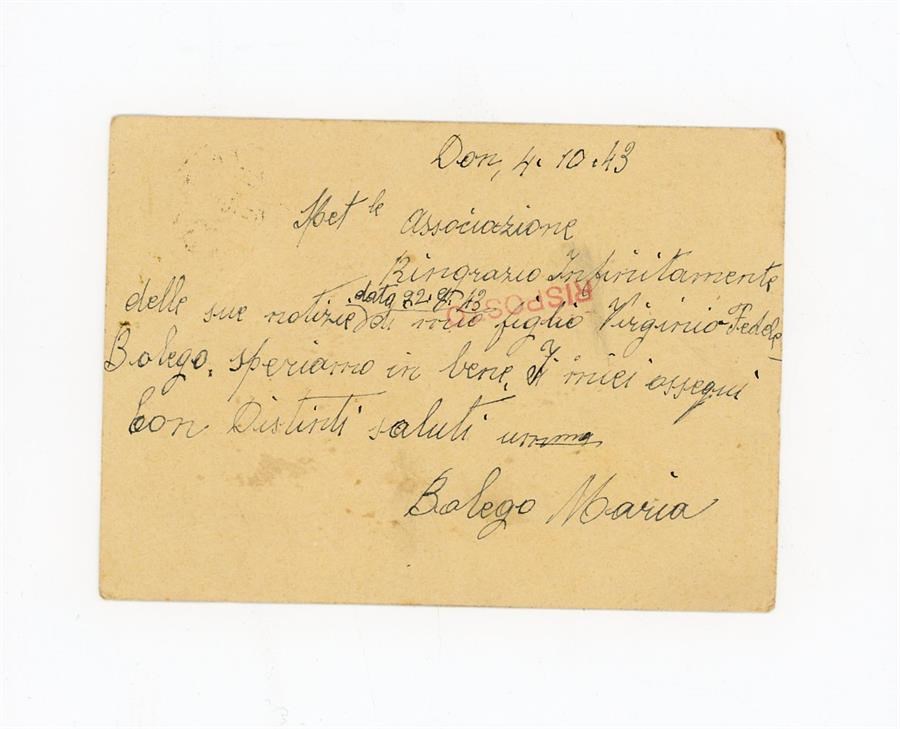 Don, 4. 10. 43
Spet le Associazione
Ringrazio Infinitamente
data 22. 9. 43
delle sue notizie di mio figlio Virginio Fedele
RISPOSTO
Bolego. speriamo in bene. I miei ossequi
Con Distinti saluti
Bolego Maria